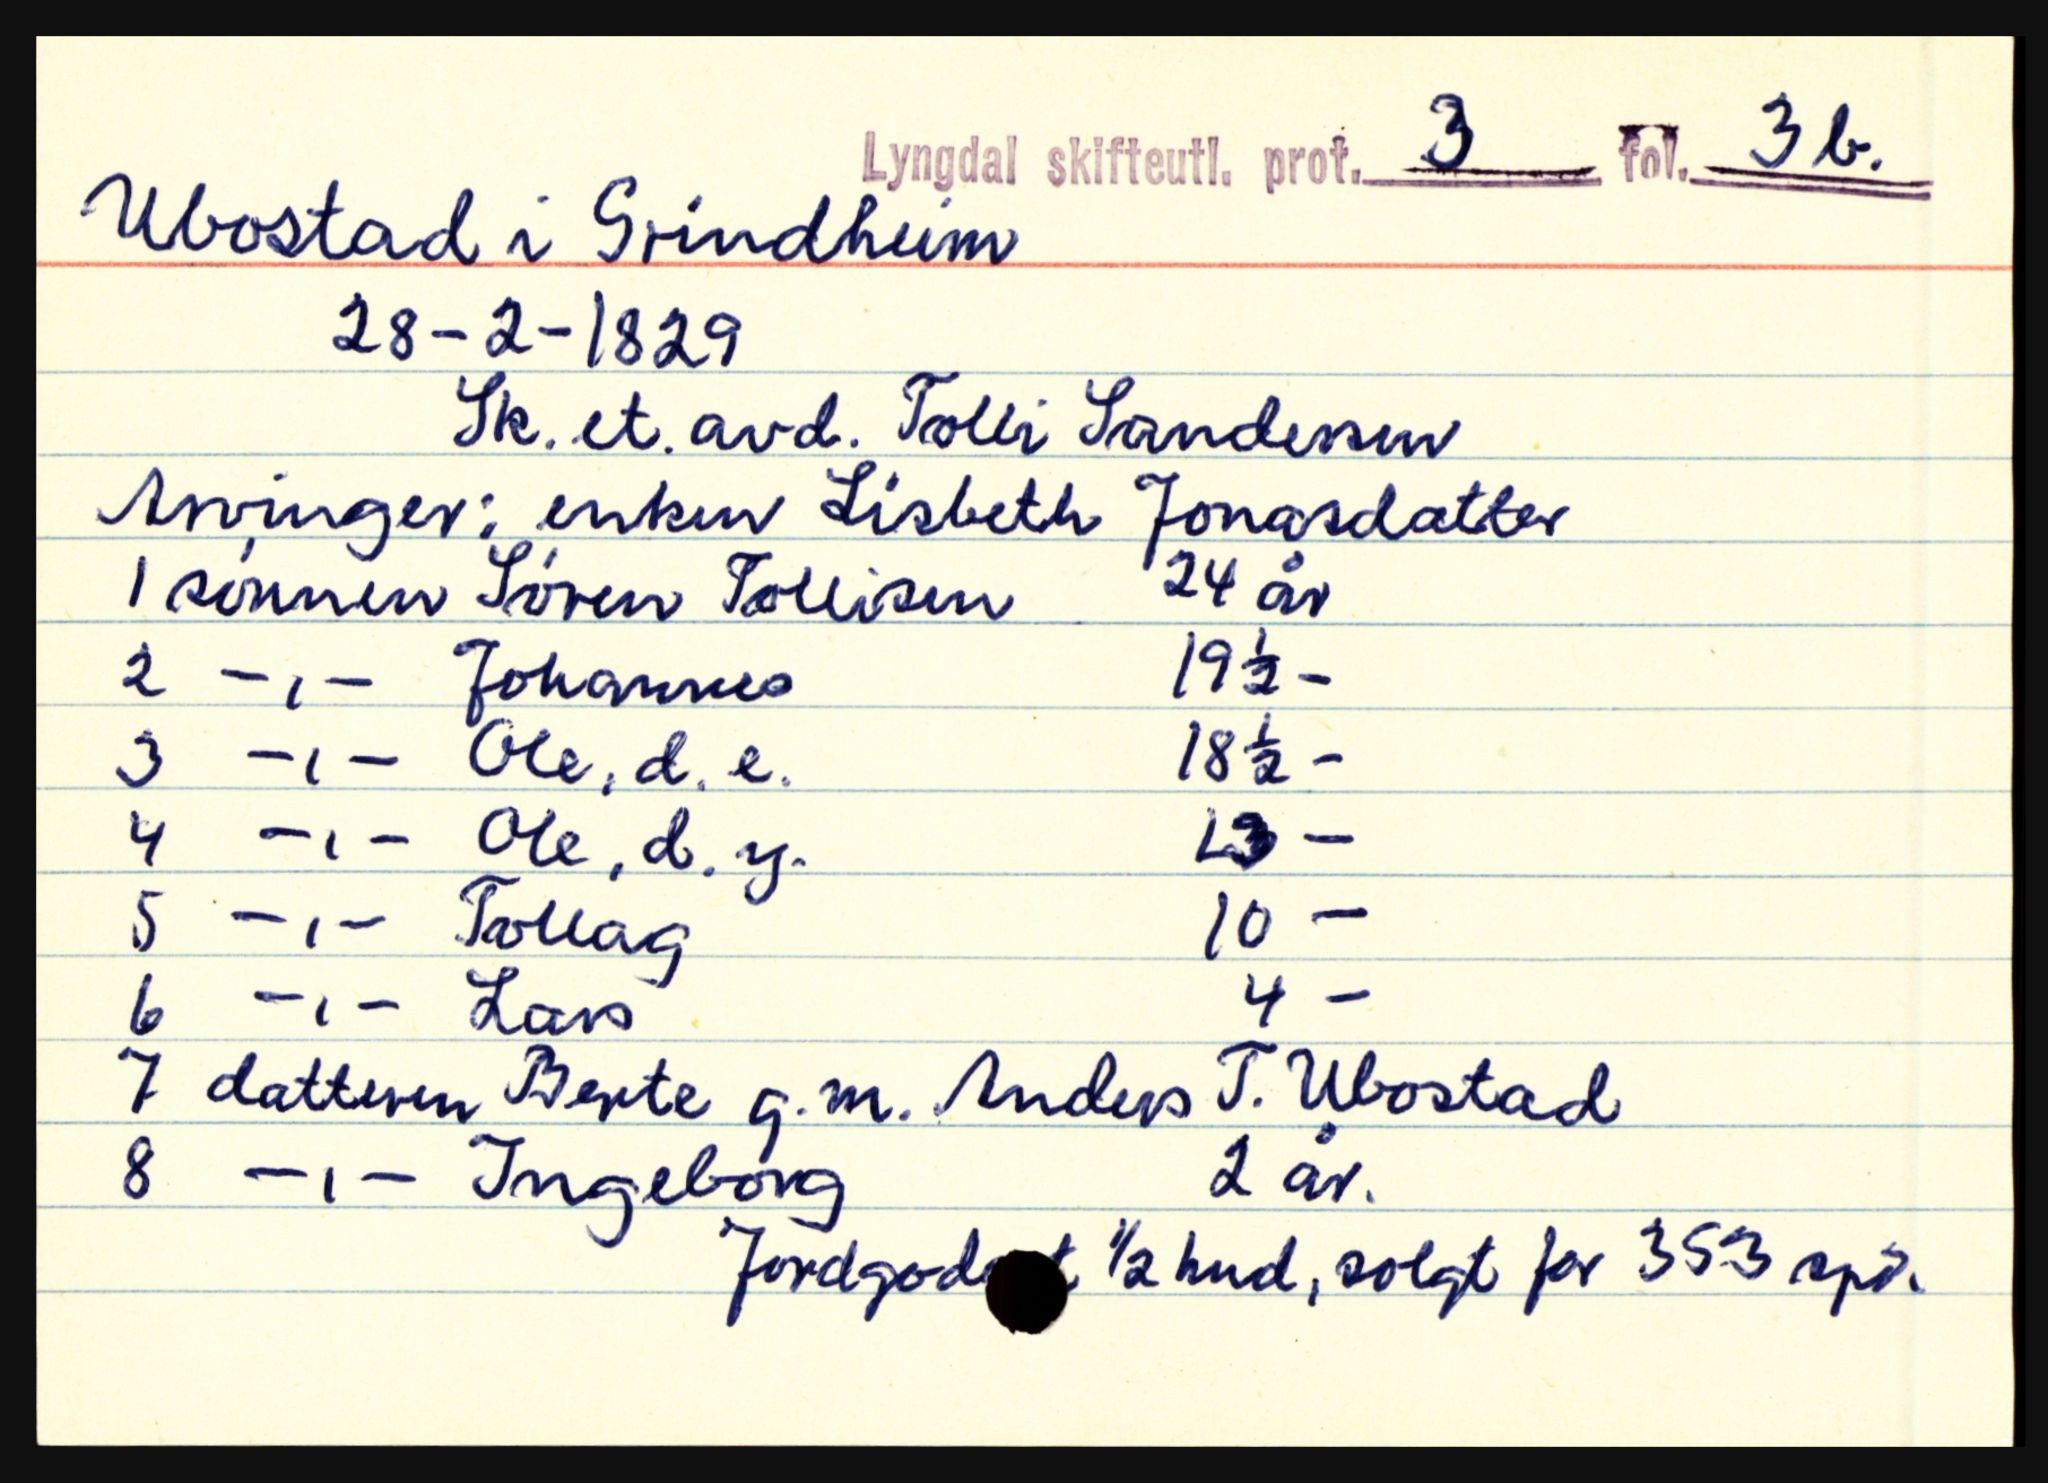 Lyngdal skifteutl. prot. 3 fol. 3b.
Ubostad i Grindheim
28-2-1829
Sk. et. avd. Tolli Sandersen
Arvinger: enken Lisbeth Jonasdatter
1 sønnen Søren Tollisen 24 år
2 -,- Johannes 19 1/2 -
3 -,- Ole, d. e. 18 1/2 -
4 -,- Ole, d. y. 13 -
5 -,- Tollag 10 -
6 -,- Lars 4 -
7 datteren Berte g.m. Anders T. Ubostad
8 -,- Ingeborg 2 år.
1/2 hud, solgt for 353 spd.